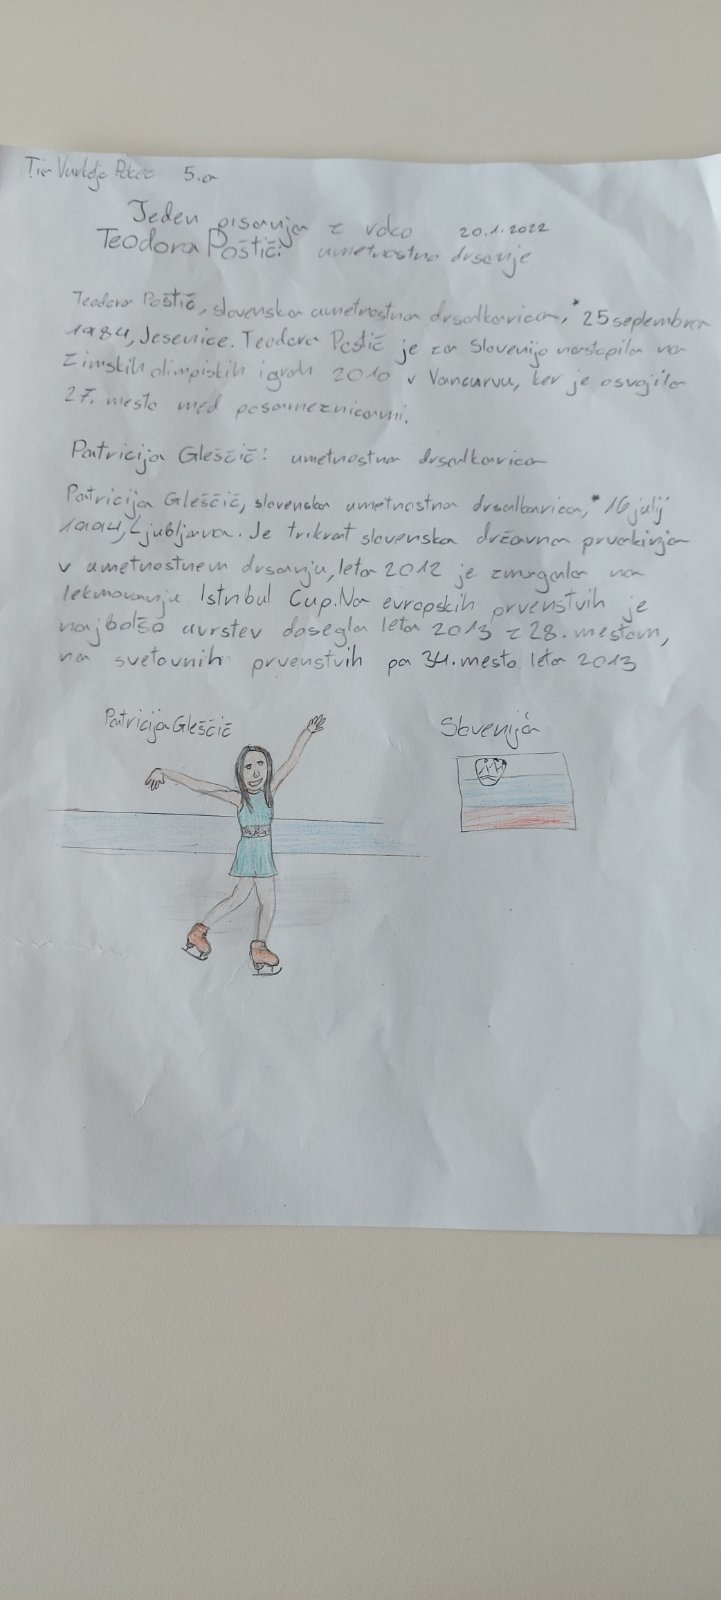 5.a
Teden pisanja z roko 20.1.2022
Teodora Poštič: umetnostno drsanje
Teodora Poštič, slovenska umetnostna drsalkavica, * 25 septembra
1984, Jesenice. Teodora Poštič je za Slovenijo nastopila na
Zimskih olimpiskih igrah 2010 v Vancurvu, ker je osvojila
27. mesto med posameznicami.
Patricija Gleščič: umetnostna drsalkavica
Patricija Gleščič, slovenska umetnostna drsalkavica, * 16 julij
1994, Ljubljana. Je trikrat slovenska državna prvakinja
v umetnostnem drsanju, leta 2012 je zmagala na
tekmovanju Istnbul Cup. Na evropskih prvenstvih je
najbolšo uvrstev dosegla leta 2013 z 28. mestom,
na svetovnih prvenstvih pa 34. mesto leta 2013
Patricija Gleščič
Slovenija